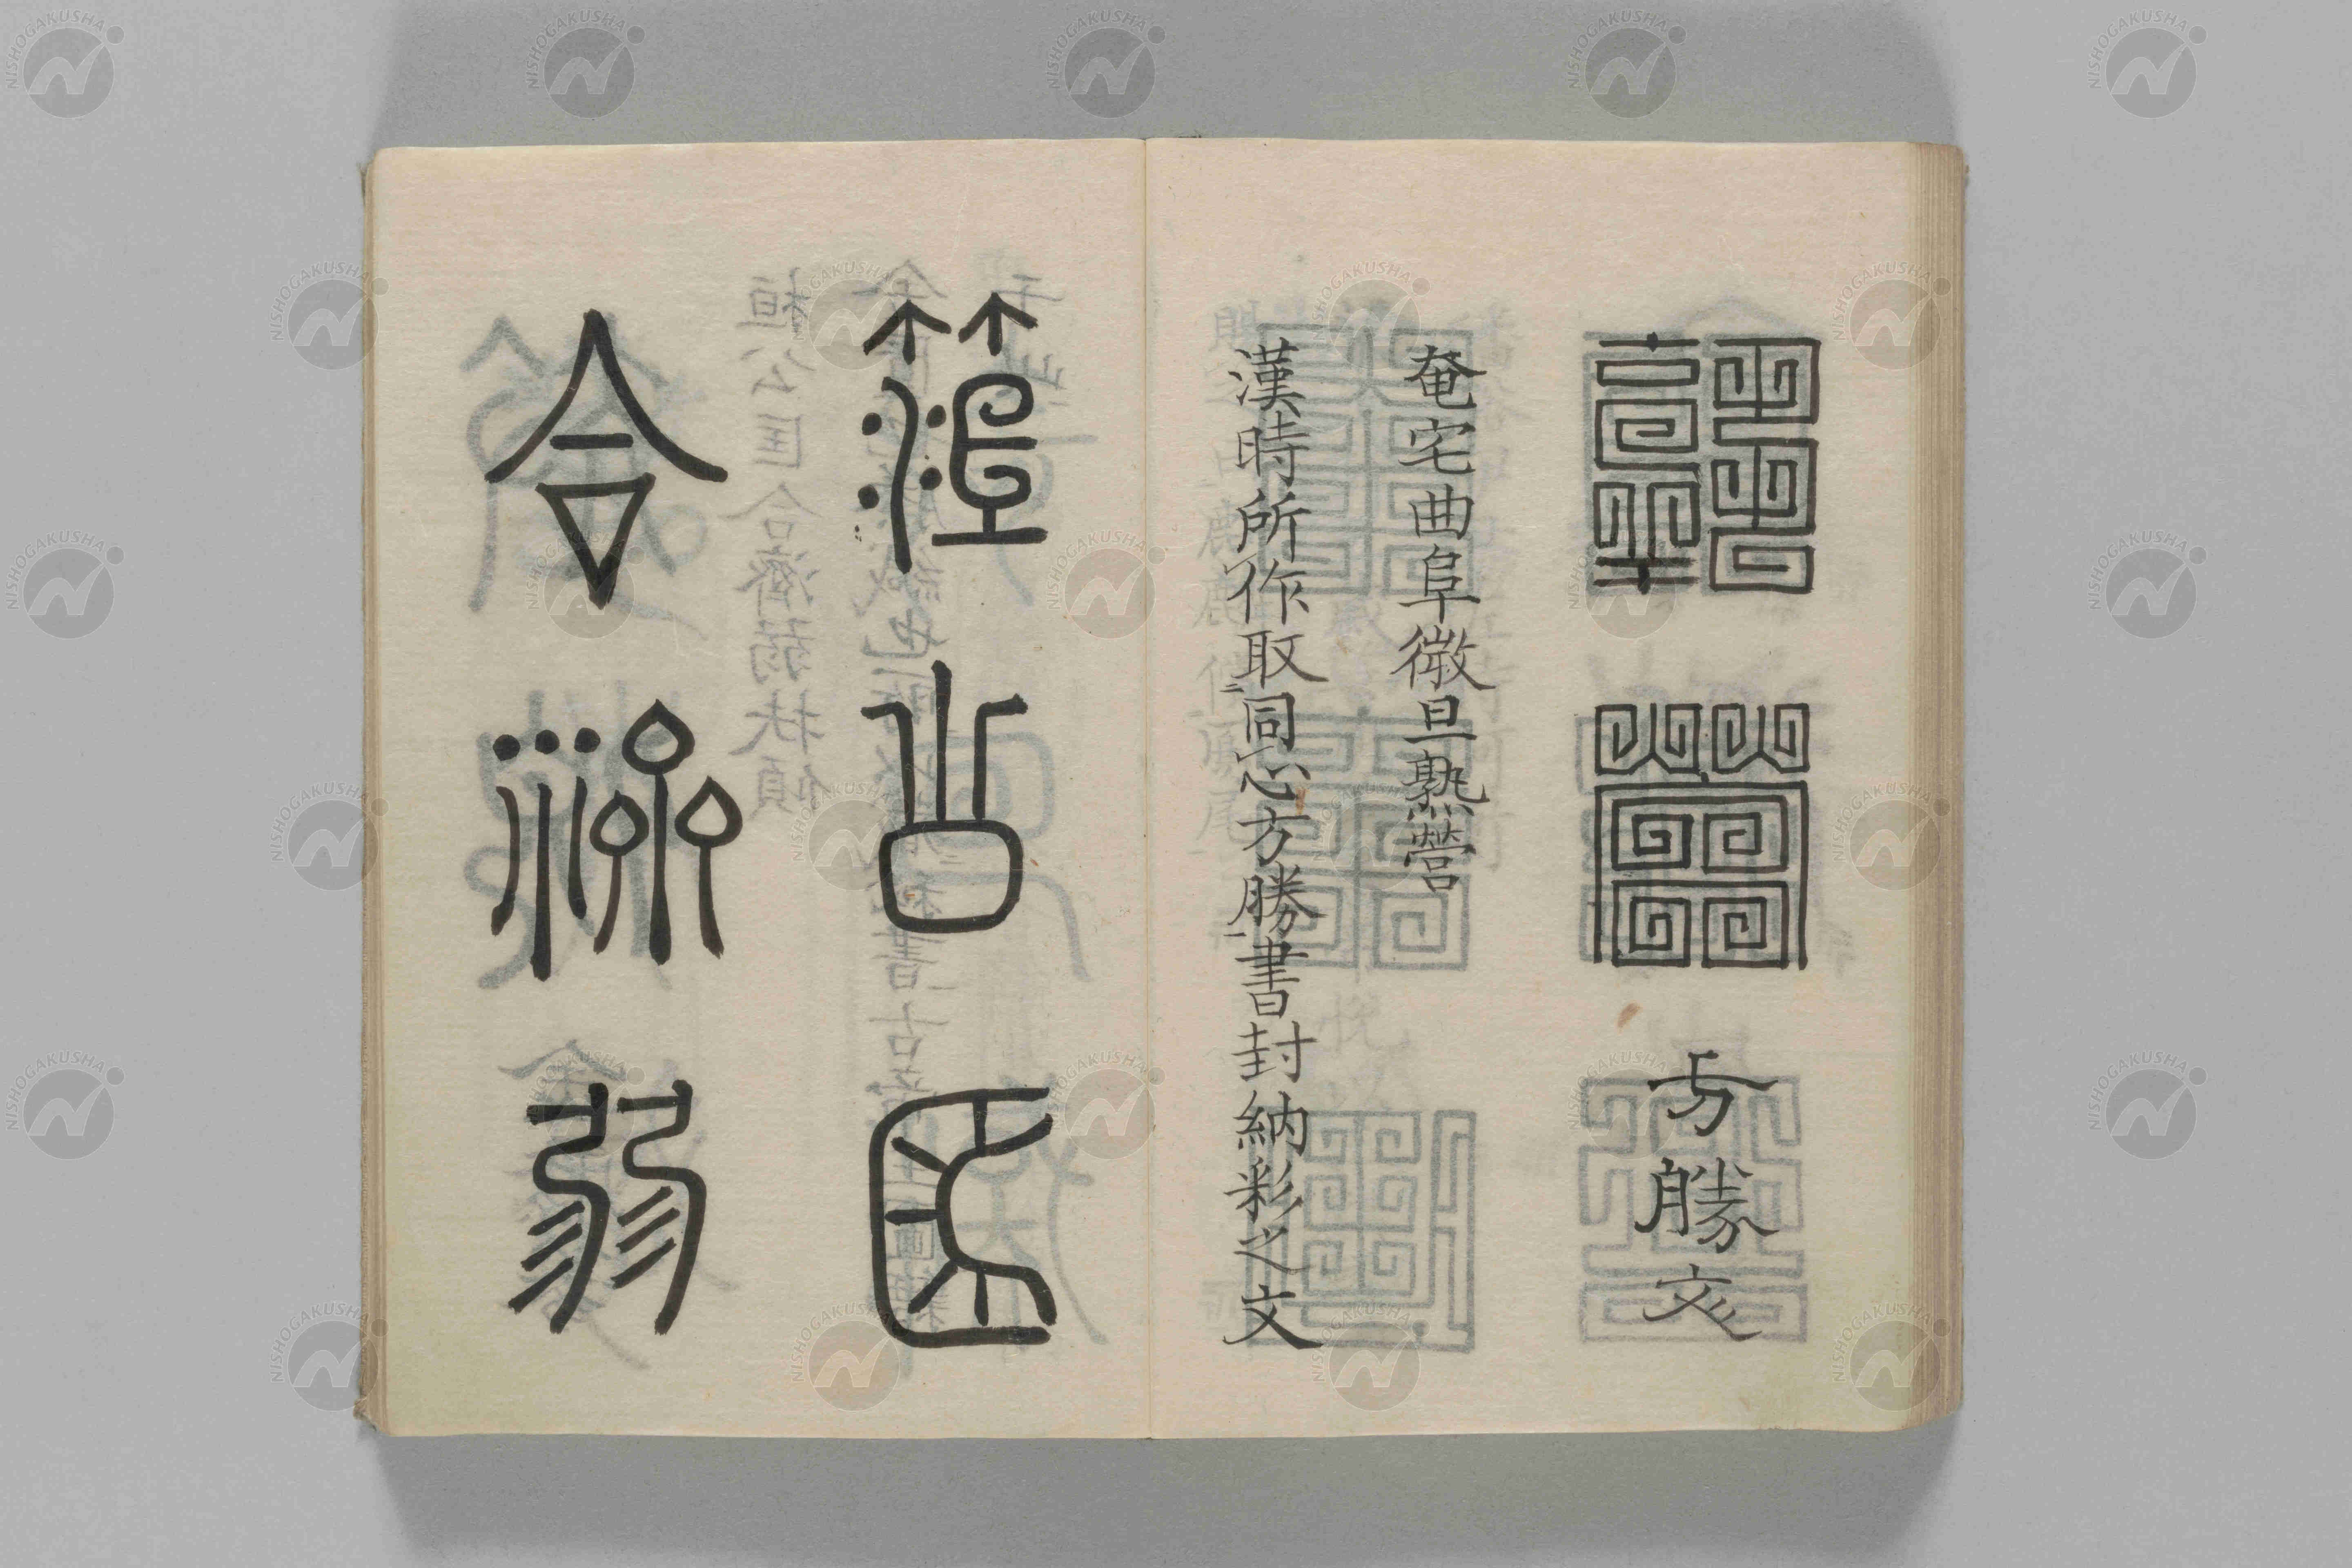 孰營 方勝文
奄宅曲阜微旦熟營
漢時所作取同心方勝書封納彩之文
桓公匡
合濟弱
NISHOGAKUSHA